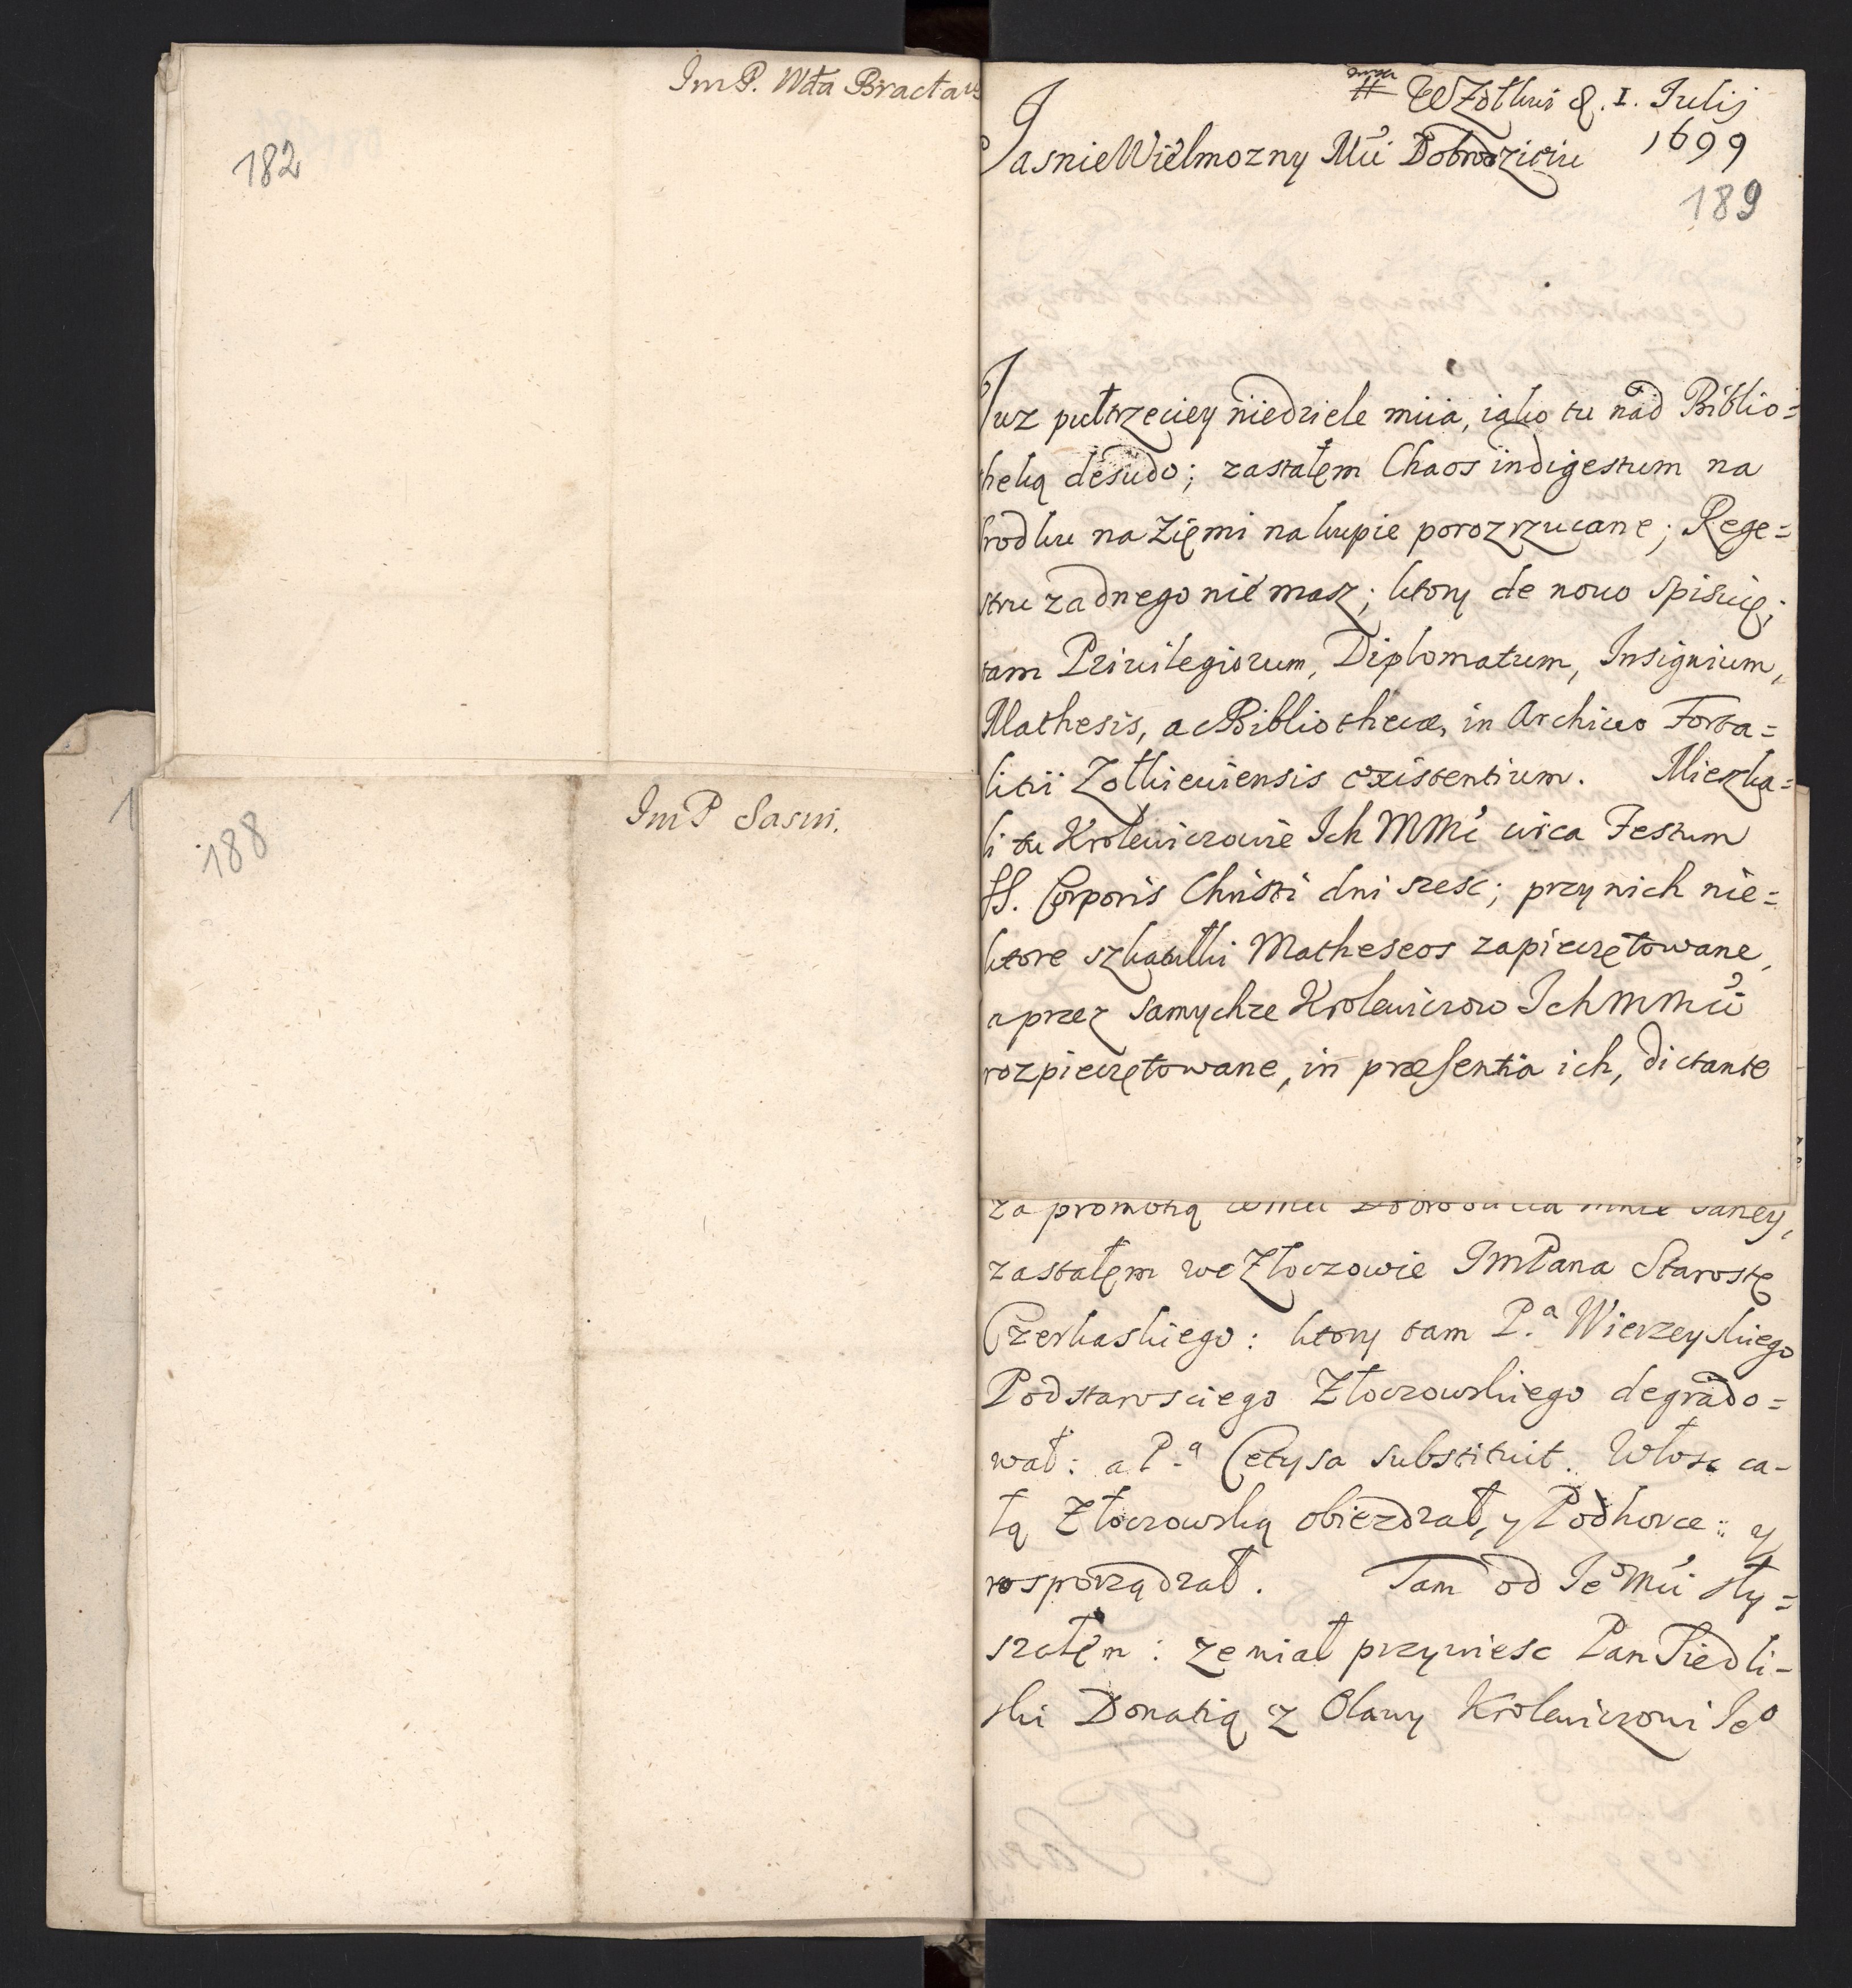 ImP. Wda Bracław
182
ImP Sasin.
188
W Zołkwi d. 1. Julij
1699
JasnieWielmozny Mći Dobrodzieiu
189
Juz pułtrzeciey niedziele miia, iako tu nad Biblio=
theką desudo; zastałęm Chaos indigestum na
srodku na Zięmi na kupie porozrzucane; Rege=
stru zadnego nie masz; ktory de novo spisuię;
tam Privilegiorum, Diplomatum, Insignium,
Mathesis, ac Bibliothecæ, in Archivo Forta=
litii Zolkieviensis existentium. Mieszka=
li tu Krolewicowie Ich MMć circa Festum
SS. Corporis Christi dni szesc; przy nich nie=
ktore szkatułki Matheseos zapieczętowane,
a przez samychze Krolewicow Ich MMći
rozpieczętowane, in præsentia ich, dictante
za promotią
zastałęm we Złoczowie ImPana Starostę
Czerkaskiego: ktory tam P.a Wierzeyskiego
Podstarosciego Złoczowskiego degrado=
wał: a P.a Cetysa substituit. Włosc ca-
łą Złoczowską obiezdzał, y Podhorce: y
rosporządzał. Tam od Jeo Mći sły=
szałęm: ze miał przyniesc Pan Siedli-
ski Donatią z Olawy Krolewiczowi Jeo